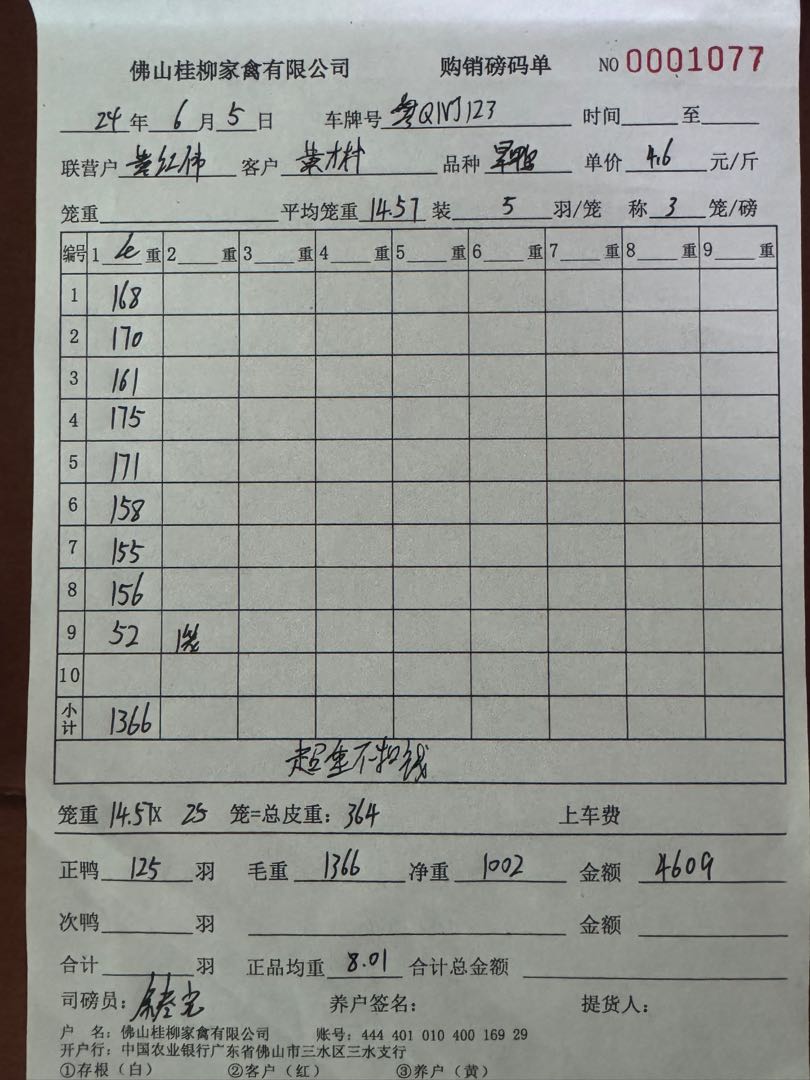 佛山桂柳家禽有限公司 购销磅码单 NO 0001077
24 年 6 月 5 日 车牌号 粤QNJ123 时间 至
联营户 黄红伟 客户 黄才林 品种 单价 4.6 元/斤
笼重 平均笼重 14.57 装 5 羽/笼 称 3 笼/磅
编号 1 重 2 重 3 重 4 重 5 重 6 重 7 重 8 重 9 重
1 168
2 170
3 161
4 175
5 171
6 158
7 155
8 156
9 52 1笼
10
小计 1366
超重不扣钱
笼重 14.57X 25 笼=总皮重: 364 上车费
正鸭 125 羽 毛重 1366 净重 1002 金额 4609
次鸭 羽 金额
合计 羽 正品均重 8.01 合计总金额
司磅员: 养户签名: 提货人:
户 名: 佛山桂柳家禽有限公司 账号: 444 401 010 400 169 29
开户行: 中国农业银行广东省佛山市三水区三水支行
①存根(白) ②客户(红) ③养户(黄)